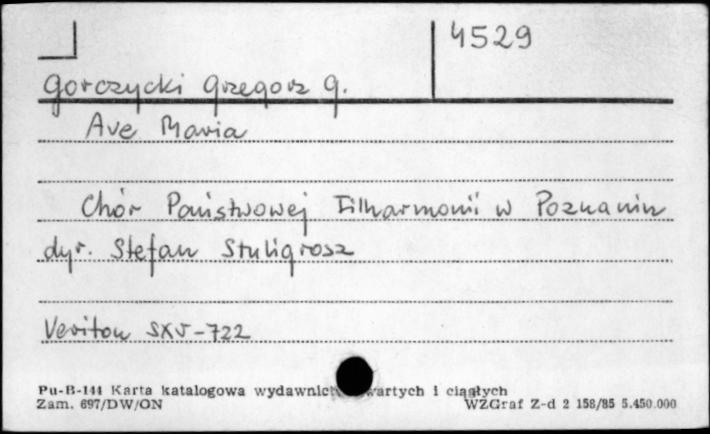 4529
Gorczycki Grzegorz G.
Ave Maria
Chór Państwowej Filharmonii w Poznaniu
dyr. Stefan Stuligrosz
Veriton SXV-722
Pu-B-144 Karta katalogowa wydawnictw zwartych i ciągłych
Zam. 697/DW/ON WZGraf Z-d 2 158/85 5.450.000